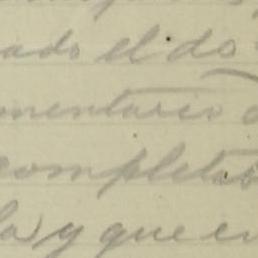 ado el do-
mentario
completas
la y que en